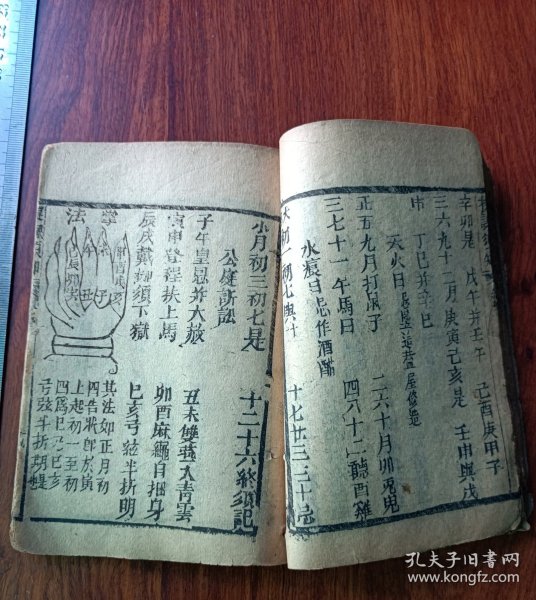 辛卯是 戊午并壬午 己酉庚甲子
三六九十二月庚寅己亥是 壬申與戊
申 丁巳并辛巳
天火日忌
正五九月打鼠子 二六十月卯兔鬼
三七十一午馬日 四六十二聽酉雞
水痕日忌作酒醋
大初一初七與十 十七廿三三十忌
小月初三初七是 十二十六終須記
公庭訴訟
子午皇恩并大赦 丑未雙業入青雲
寅申登程扶上馬 卯酉麻繩自捆身
辰戌戴枷須下獄 巳亥弓弦半折明
掌法
其法如正月初
四告狀即於寅
上起初一至初
四為巳乃巳亥
弓弦半折明是
孔夫子旧书网
www.kongfz.com